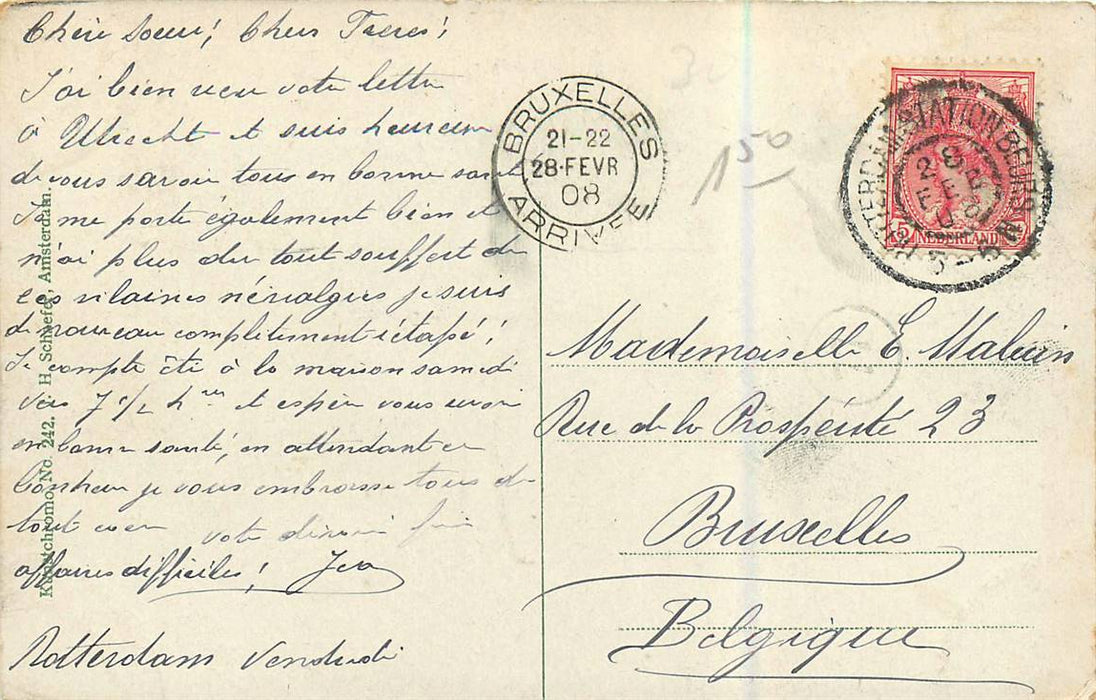 Chère Soeur! Chers Freres!
J'ai bien recu votre lettre
à Utrecht et suis heureux
de vous savoir tous en bonne santé
Je me porte également bien et
n'ai plus du tout souffert de
ces vilaines névralgies je suis
de nouveau complètement
Je compte être à la maison samedi
vers 7 1/2 h et espère vous revoir
en bonne santé, en attendant ce
bonheur je vous embrasse tous de
tout coeur votre
affaires difficiles!
Rotterdam Vendredi
Kunstchromo, No. 242, J. H. Schaefer, Amsterdam.
BRUXELLES
21-22
28·FEVR
08
ARRIVÉE
1 50
ROTTERDAM STATION BEURS
5
NEDERLAND
Mademoiselle E.
Rue de la Prospérité 23
Bruxelles
Belgique